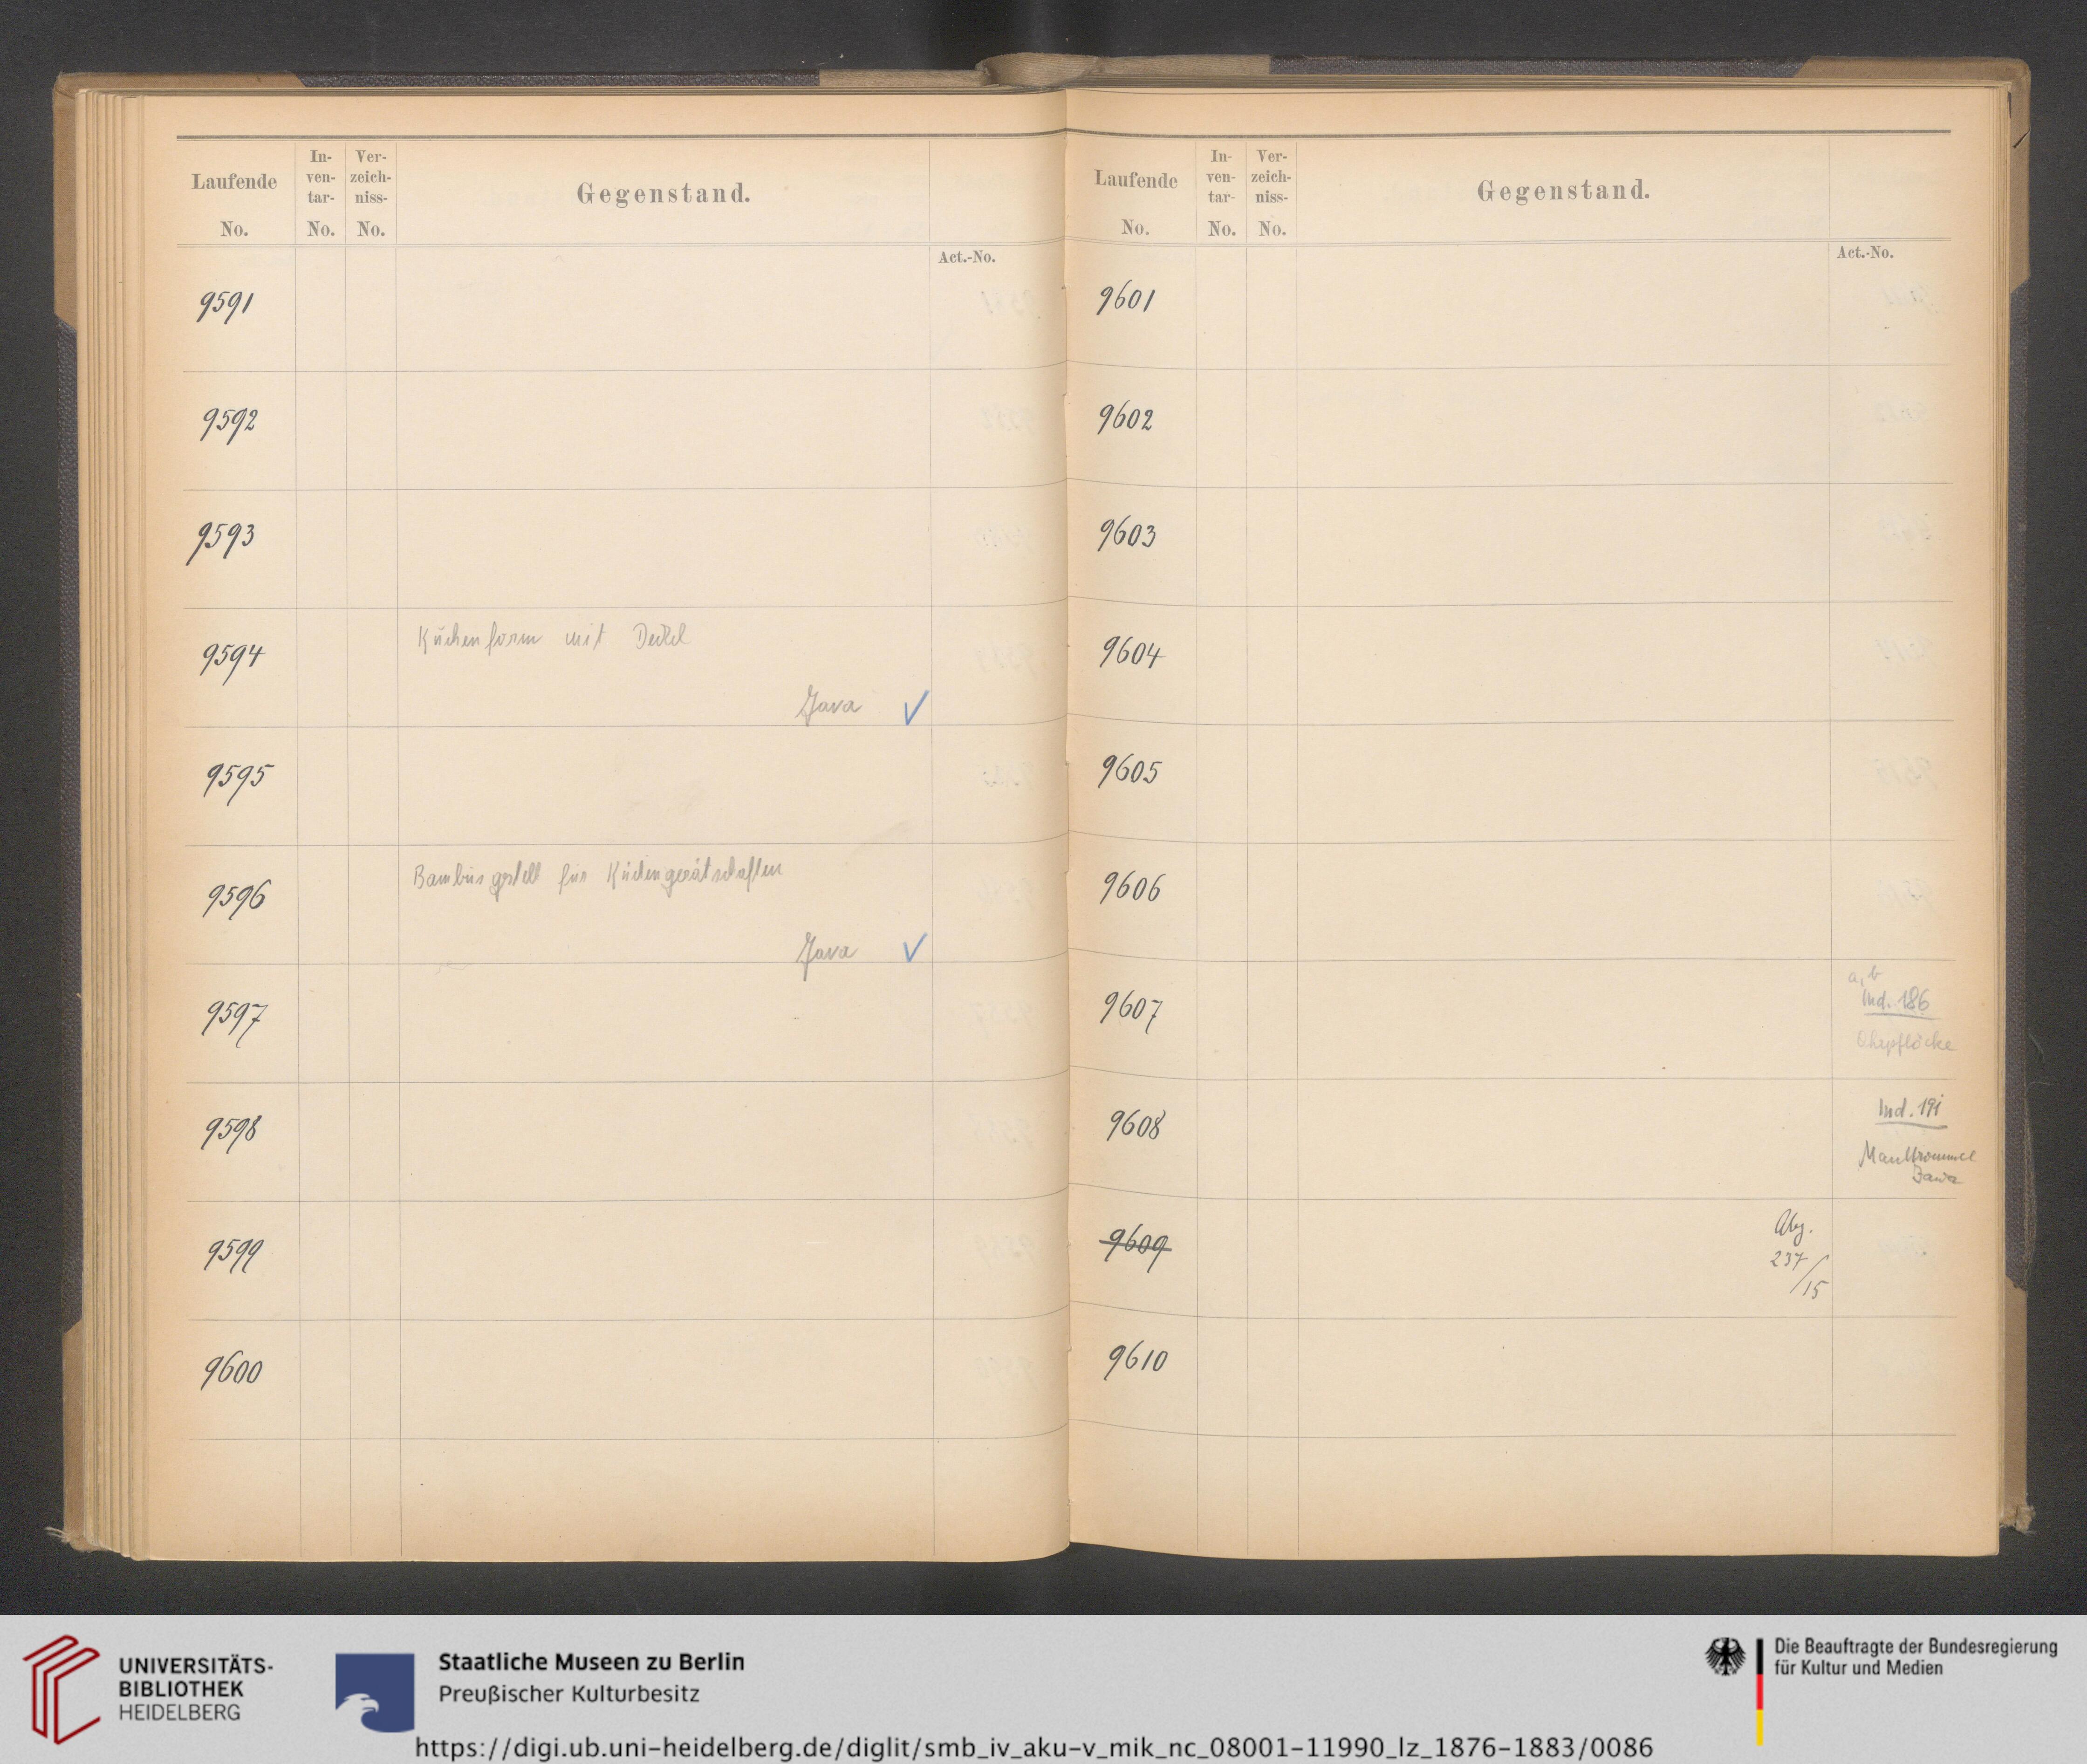 Laufende
No.
In-
ven-
tar-
No.
Ver-
zeich-
niss-
No.
Gegenstand.
Act.-No.
9591
9592
9593
9594
Kuchenform mit Deckel
Java ✓
9595
9596
Bambusgestell für Küchengerätschaften
Java ✓
9597
9598
9599
9600
Laufende
No.
In-
ven-
tar-
No.
Ver-
zeich-
niss-
No.
Gegenstand.
Act.-No.
9601
9602
9603
9604
9605
9606
9607
a, b
Ind. 186
Ohrpflöcke
9608
Ind. 191
Maultrommel
Java
9609
Abg.
237/15
9610
UNIVERSITÄTS-
BIBLIOTHEK
HEIDELBERG
Staatliche Museen zu Berlin
Preußischer Kulturbesitz
Die Beauftragte der Bundesregierung
für Kultur und Medien
https://digi.ub.uni-heidelberg.de/diglit/smb_iv_aku-v_mik_nc_08001-11990_lz_1876-1883/0086